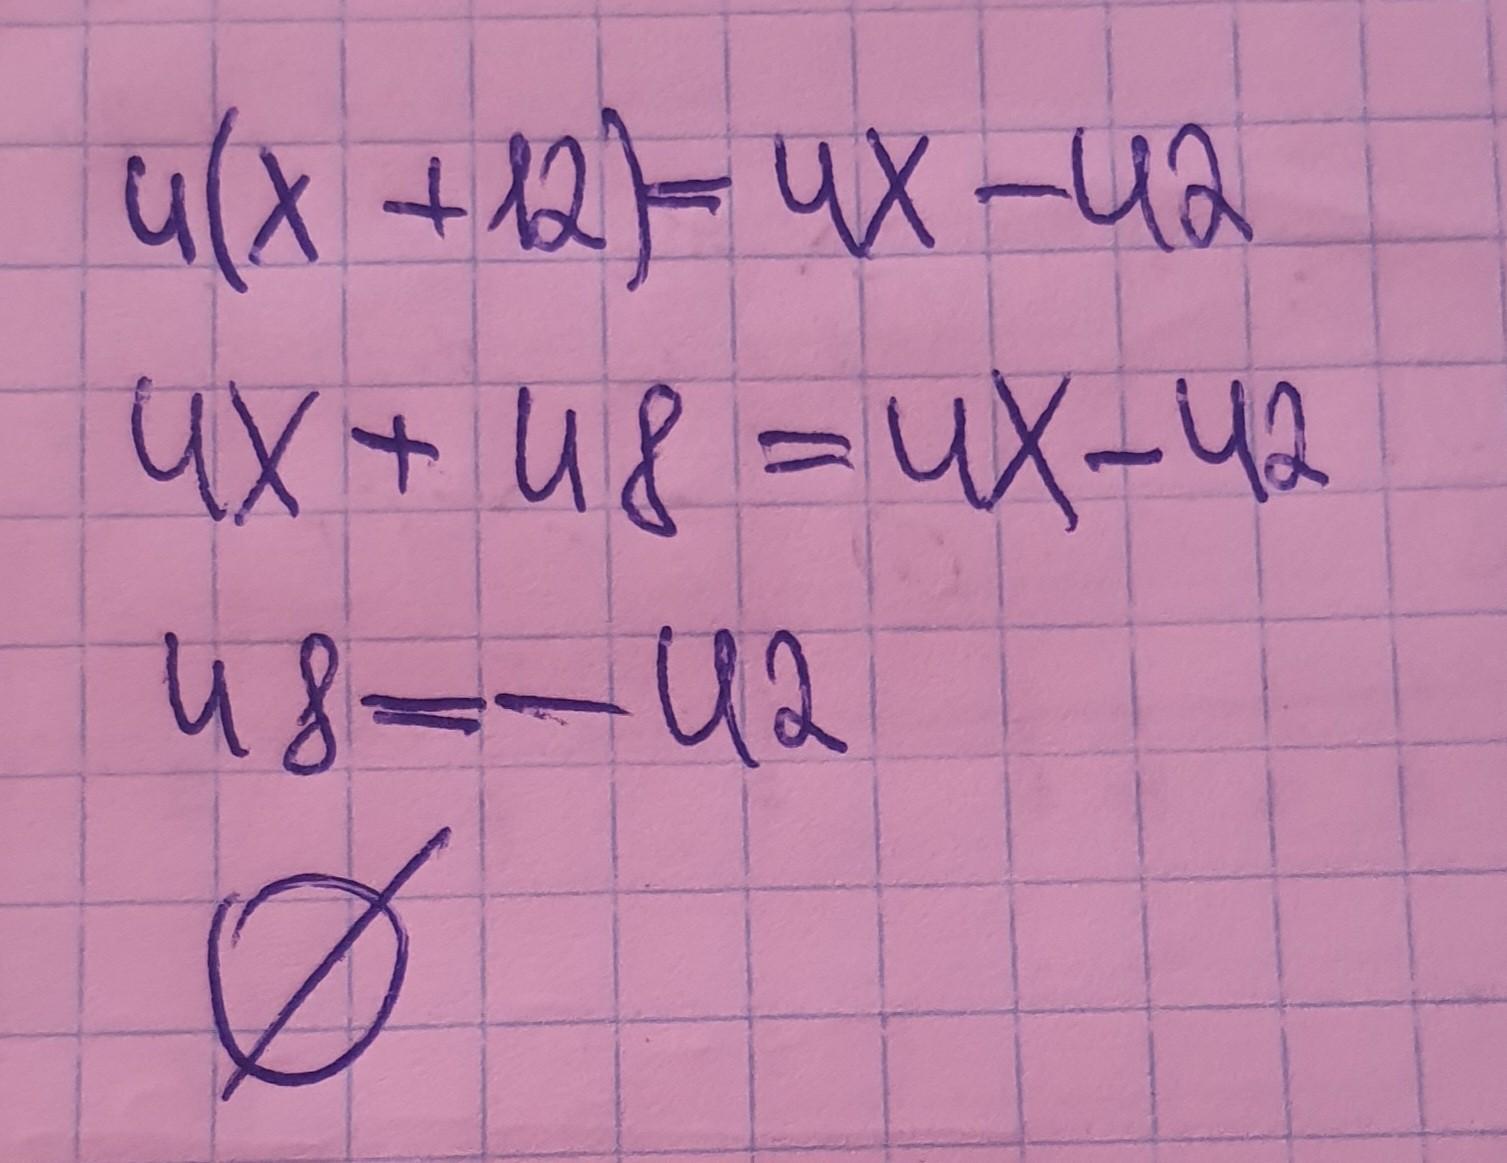 4(x + 12) = 4x - 42
4x + 48 = 4x - 42
48 = - 42
∅